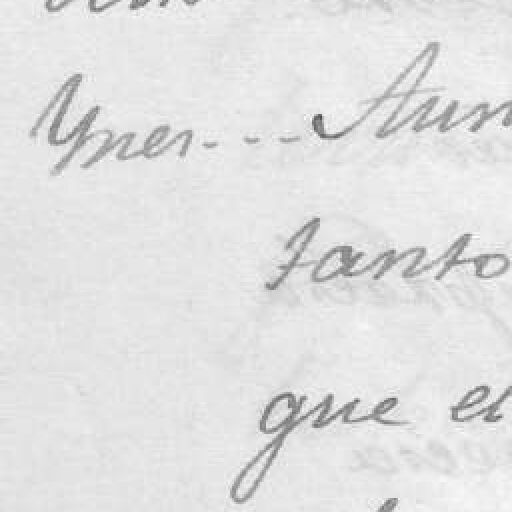 Ynes....Aun
tanto
que el